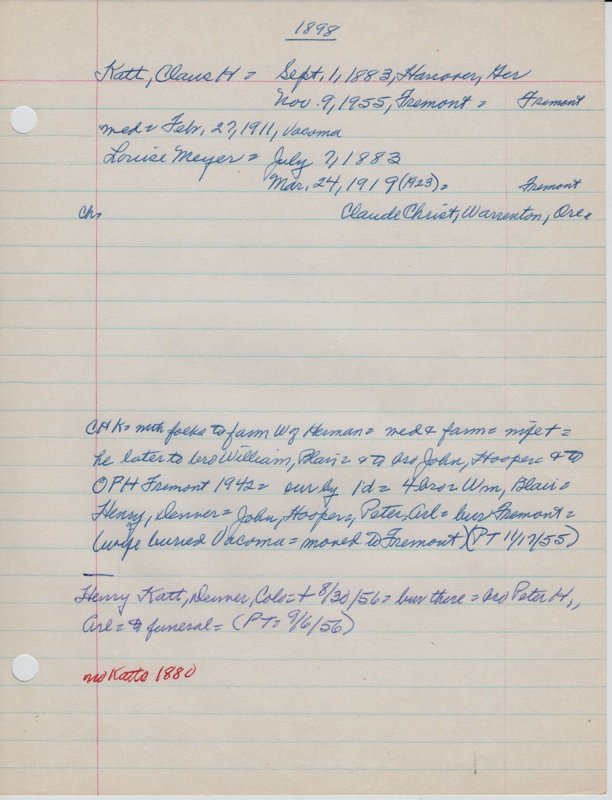 1898
Katt, Claus H = Sept. 1, 1883, Hanover, Ger
Nov. 9, 1955, Fremont = Fremont
med = Febr. 27, 1911, Vacoma
Louise Meyer = July 7, 1883
Mar. 24, 1919 (1923) = Fremont
ch. Claude Christ, Warrenton, Ore.
CHK = with folks to farm W of Herman = med & farm =
he later to bro William, Blair = & to bro John, Hooper = & to
OPH Fremont 1942 = sur by 1 d = 4 bro = Wm, Blair =
Henry, Denver = John, Hooper =, Peter, Arl = bur Fremont =
(wife buried Vacoma = moved to Fremont) (PT 11/17/55)
Henry Katt, Denver, Colo = + 8/30/56 = bur there = bro Peter H,,
Arl = to funeral = (PT = 9/6/56)
no Katts 1880